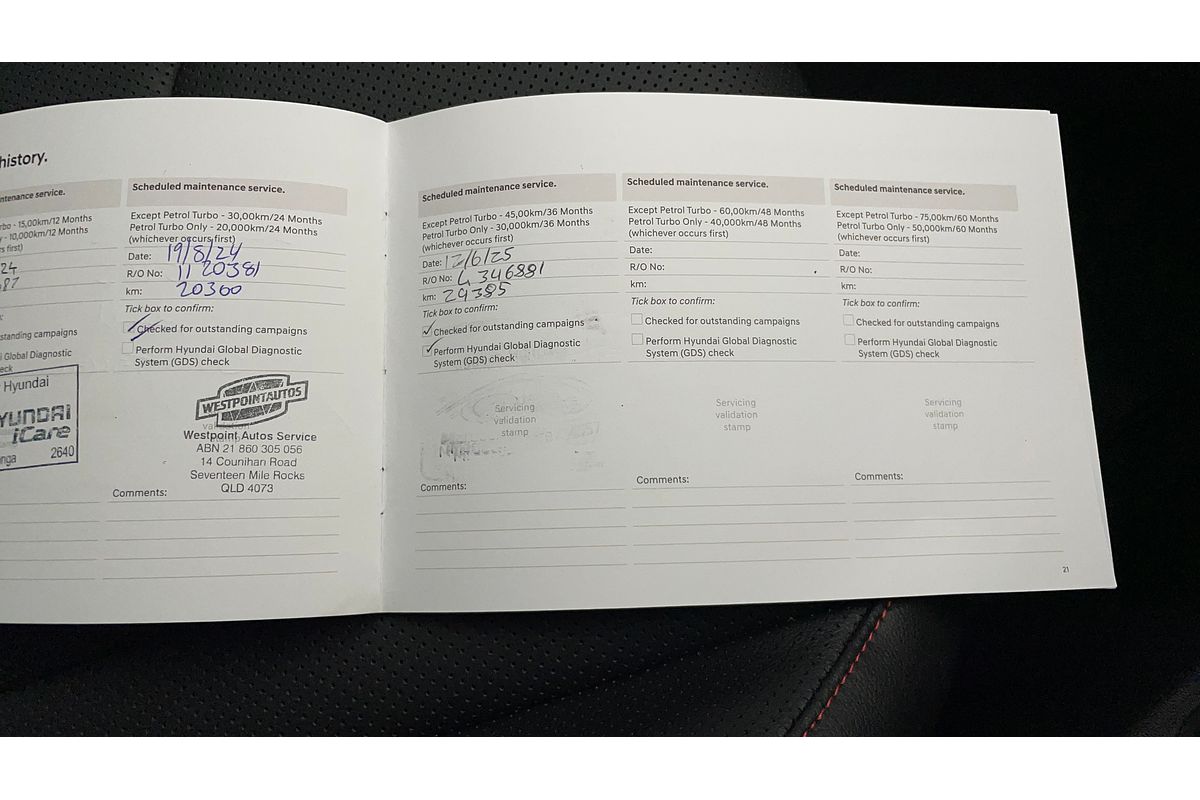 history.
ntenance service.
rbo - 15,00km/12 Months
y - 10,000km/12 Months
s first)
24
87
standing campaigns
i Global Diagnostic
eck
Hyundai
YUNDAI
iCare
nga 2640
Scheduled maintenance service.
Except Petrol Turbo - 30,00km/24 Months
Petrol Turbo Only - 20,000km/24 Months
(whichever occurs first)
Date: 19/8/24
R/O No: 1120381
km: 20360
Tick box to confirm:
Checked for outstanding campaigns
Perform Hyundai Global Diagnostic
System (GDS) check
WESTPOINTAUTOS
Westpoint Autos Service
ABN 21 860 305 056
14 Counihan Road
Seventeen Mile Rocks
QLD 4073
Comments:
Scheduled maintenance service.
Except Petrol Turbo - 45,00km/36 Months
Petrol Turbo Only - 30,000km/36 Months
(whichever occurs first)
Date: 12/6/25
R/O No: 4346881
km: 29385
Tick box to confirm:
Checked for outstanding campaigns
Perform Hyundai Global Diagnostic
System (GDS) check
Servicing
validation
stamp
Comments:
Scheduled maintenance service.
Except Petrol Turbo - 60,00km/48 Months
Petrol Turbo Only - 40,000km/48 Months
(whichever occurs first)
Date:
R/O No:
km:
Tick box to confirm:
Checked for outstanding campaigns
Perform Hyundai Global Diagnostic
System (GDS) check
Servicing
validation
stamp
Comments:
Scheduled maintenance service.
Except Petrol Turbo - 75,00km/60 Months
Petrol Turbo Only - 50,000km/60 Months
(whichever occurs first)
Date:
R/O No:
km:
Tick box to confirm:
Checked for outstanding campaigns
Perform Hyundai Global Diagnostic
System (GDS) check
Servicing
validation
stamp
Comments:
21